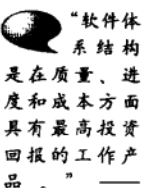 “软件体
系结构
是在质量、进
度和成本方面
具有最高投资
回报的工作产
品。”——